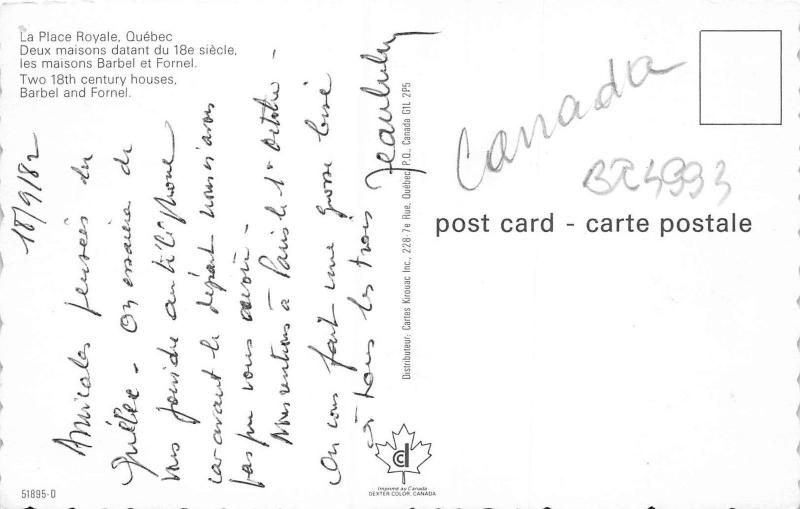 La Place Royale, Québec
Deux maisons datant du 18e siècle,
les maisons Barbel et Fornel.
Two 18th century houses,
Barbel and Fornel.
18/9/82
Amicales pensées du
Québec - On essaiera de
vous joindre au téléphone
car avant le départ nous n'avons
pas pu vous avoir -
Nous rentrons à Paris le 1er octobre -
On vous fait une grosse bise
à tous les trois
Distributeur: Cartes Kirouac Inc., 228-7e Rue, Québec, P.Q., Canada G1L 2P5
Canada
post card - carte postale
51895-D
cd
Imprimé au Canada
DEXTER COLOR, CANADA